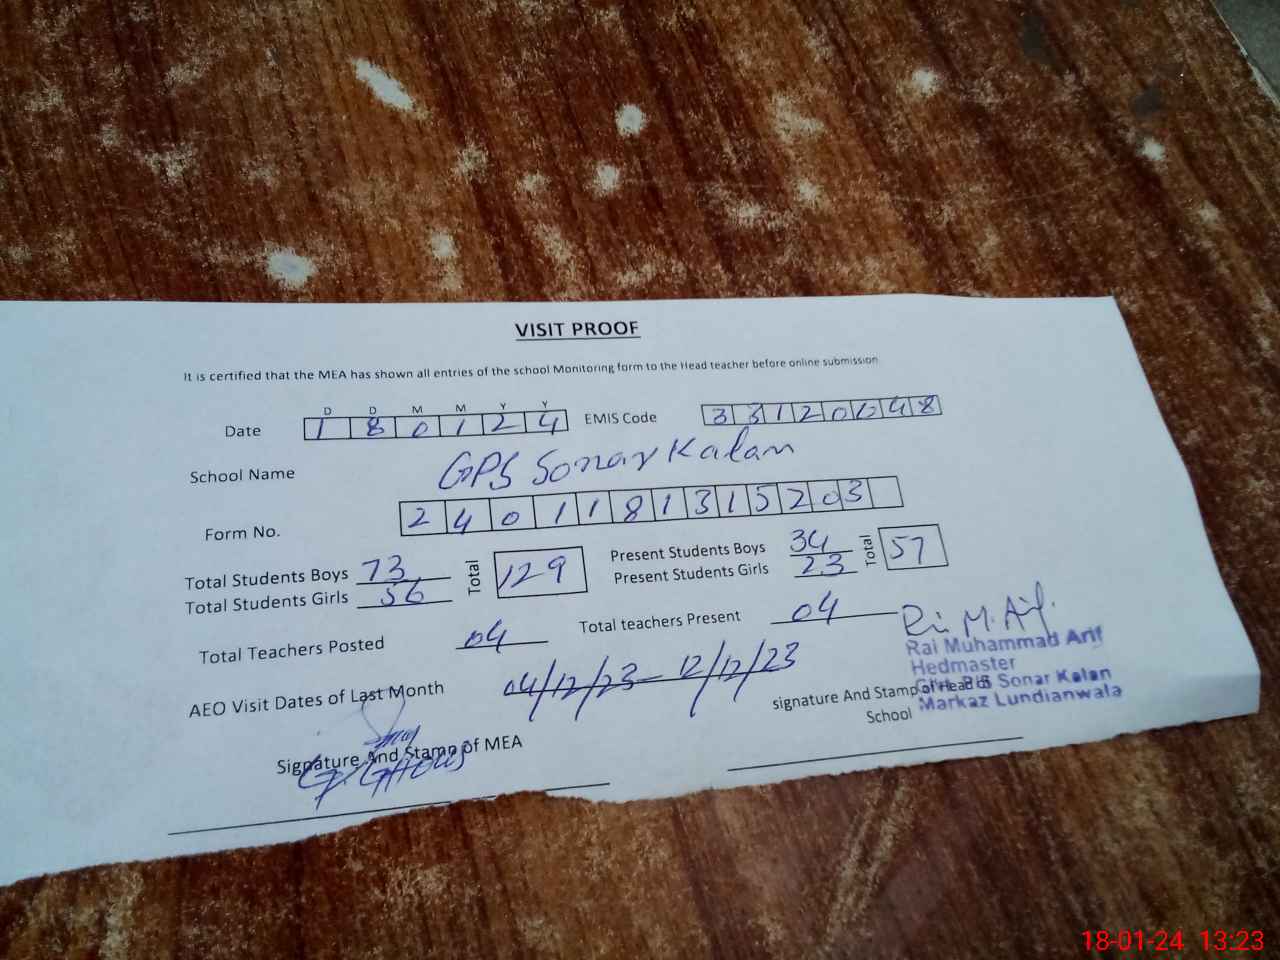 VISIT PROOF
It is certified that the MEA has shown all entries of the school Monitoring form to the Head teacher before online submission
D D M M Y Y
Date 1 8 0 1 2 4 EMIS Code 3 3 1 2 0 0 4 8
School Name GPS Sonar Kalan
Form No. 2 4 0 1 1 8 1 3 1 5 2 0 3
Total Students Boys 73 Total 129 Present Students Boys 34 Total 57
Total Students Girls 56 Present Students Girls 23
Total Teachers Posted 04 Total teachers Present 04
R. M. Arif
Rai Muhammad Arif
Hedmaster
Sonar Kalan
Markaz Lundianwala
AEO Visit Dates of Last Month 04/12/23 — 12/12/23
signature And Stamp of Head of
School
Signature And Stamp of MEA
18-01-24 13:23